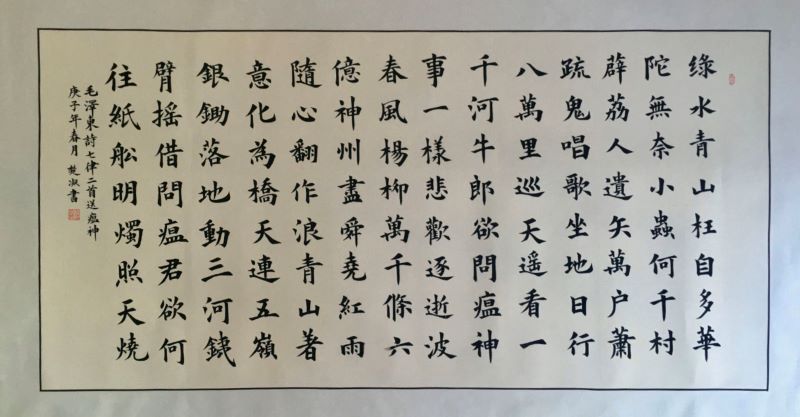 緑水青山枉自多華
陀無奈小蟲何千村
薜荔人遺矢萬户蕭
疏鬼唱歌坐地日行
八萬里巡天遥看一
千河牛郎欲問瘟神
事一樣悲歡逐逝波
春風楊柳萬千條六
億神州盡舜堯紅雨
隨心翻作浪青山著
意化為橋天連五嶺
銀鋤落地動三河鐵
臂摇借問瘟君欲何
往紙舩明燭照天燒
毛澤東詩七律二首送瘟神
庚子年春月 淑書